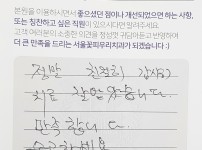 본원을 이용하시면서 좋으셨던 점이나 개선되었으면 하는 사항,
또는 칭찬하고 싶은 직원이 있으시다면 말씀해주세요.
고객 여러분의 소중한 의견을 정성껏 귀담아듣고 반영하여
더 큰 만족을 드리는 서울꽃피우리치과가 되겠습니다 :)
정말 친절히
치료 잘 받았습니다.
만족 합니다.